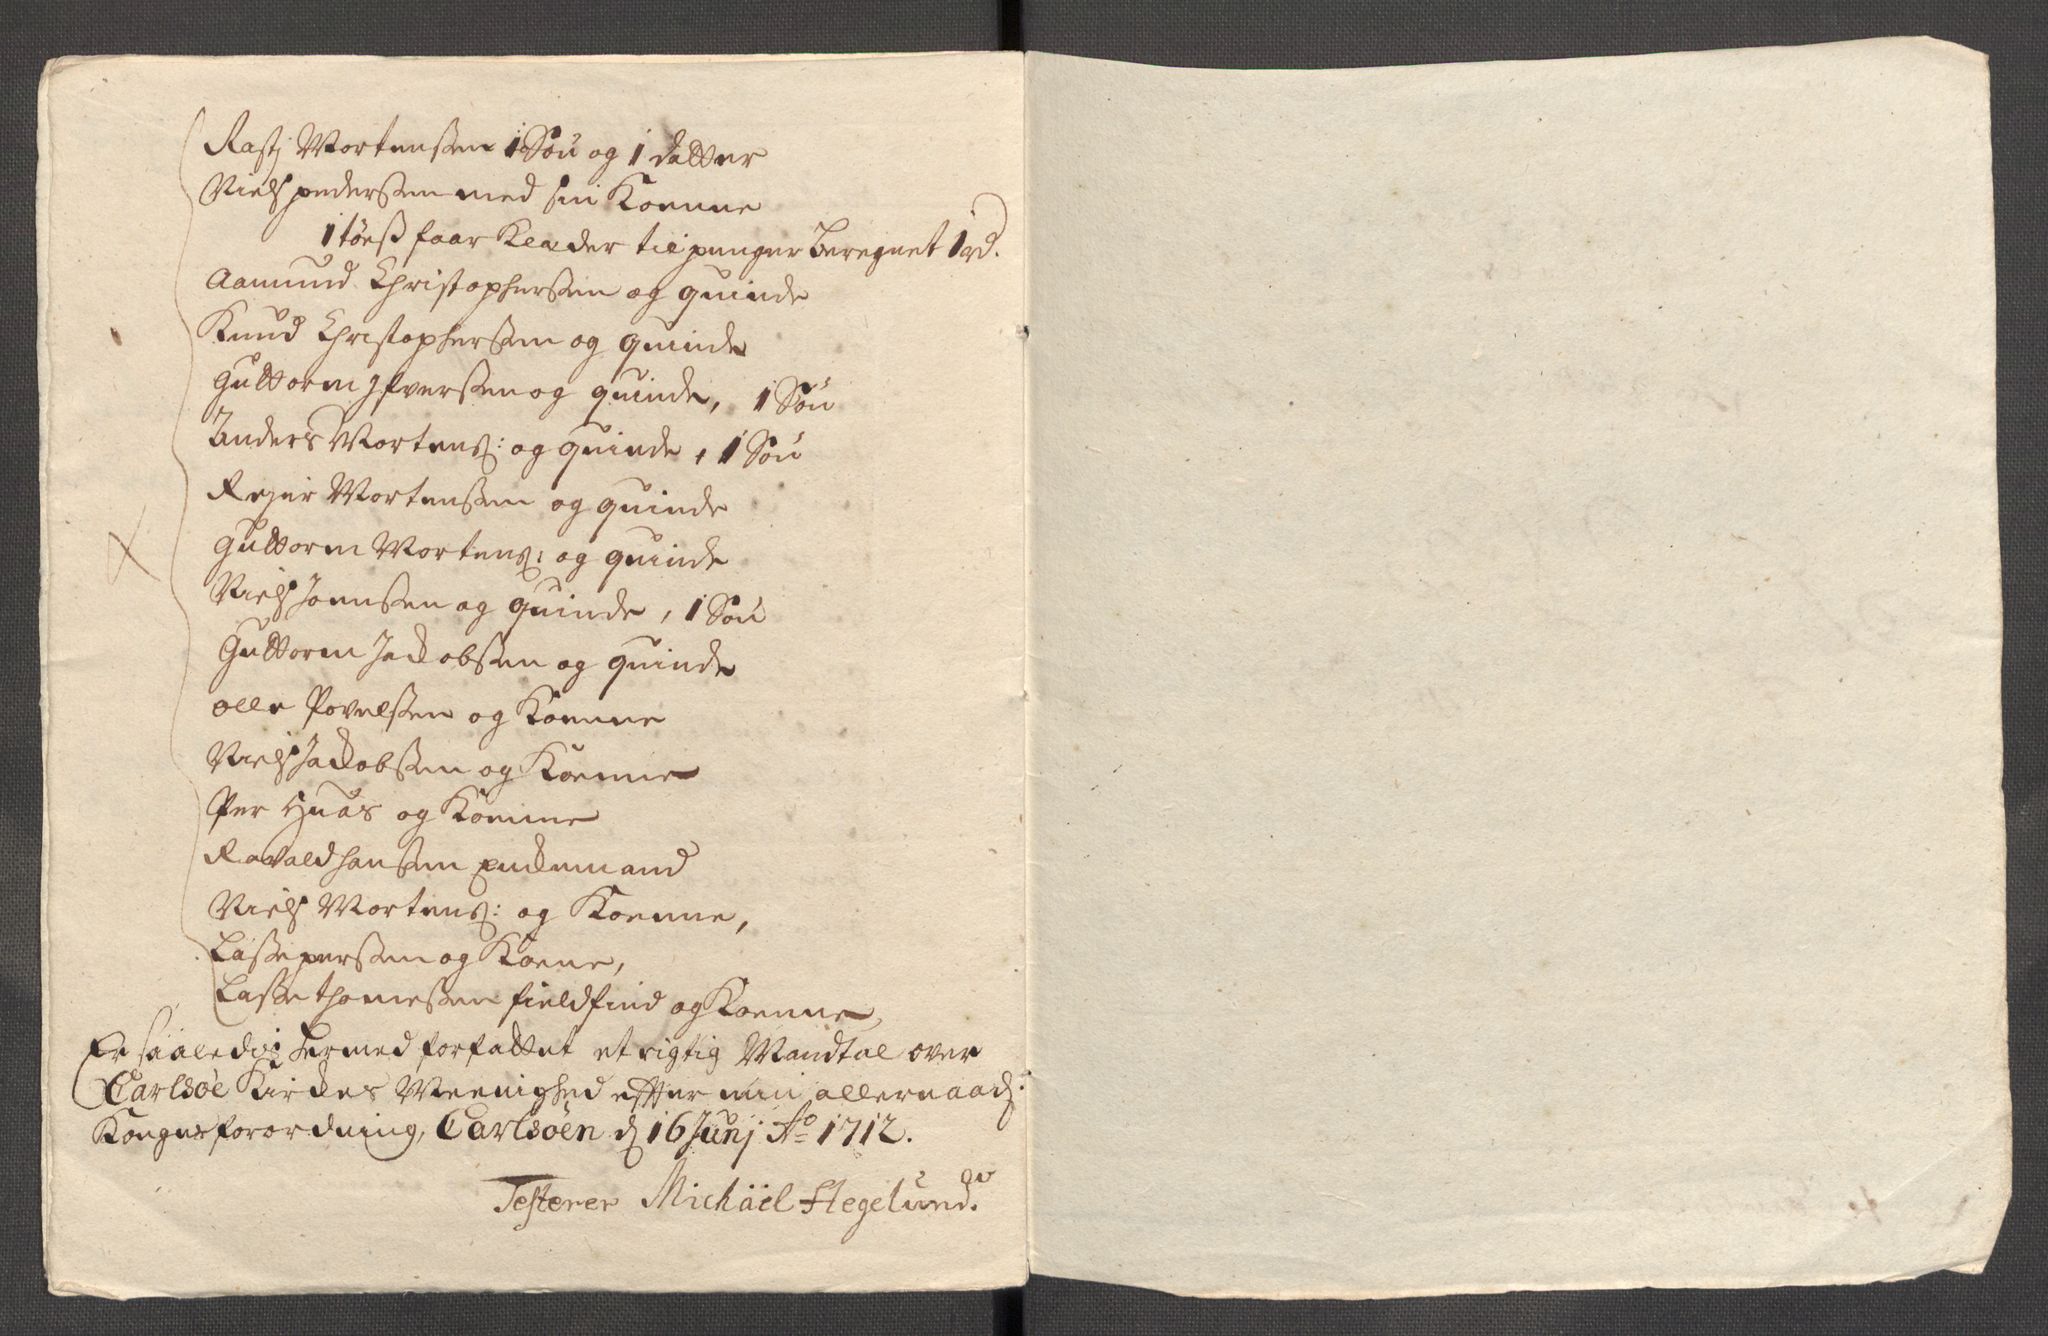 Rastj Mortenssen 1 Søn og 1 datter
Niels pederssen med sin Koenne
1 tøess faar Klæder til penger beregnet 1 rd.
Aamund Christopherssen og quinde
Knud Christopherssen og quinde
Guttorm Ifverssen og quinde, 1 Søn
Anders Mortens: og quinde, 1 Søn
Rejer Mortenssen og quinde
Guttorm Mortens: og quinde
Niels Joenssen og quinde, 1 Søn
Guttorm Jackobssen og quinde
Olle Povelssen og Koenne
Niels Jackobssen og Koenne
Per og Konne
Ravald Hanssen Enckemand
Niels Mortens: og Koenne,
Lasse perssen og Koene,
Lasse thomessen fieldfind og Koenne,
Er saaledis hermed forfattet et rigtig Mandtal over
Carlsøe Kirckes Meenighed effter min allernaads:
Konges forordning, Carlsøen d 16 Junj Ao 1712.
Testerer Michäel Hegelund.